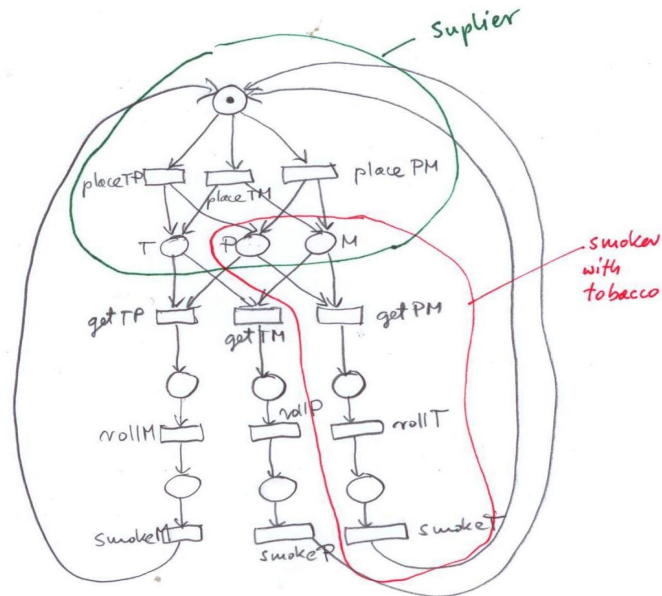 Suplier
placeTP
placeTM
place PM
T
P
M
smoker
with
tobacco
getTP
getTM
getPM
rollM
rollP
rollT
smokeM
smokeP
smokeT